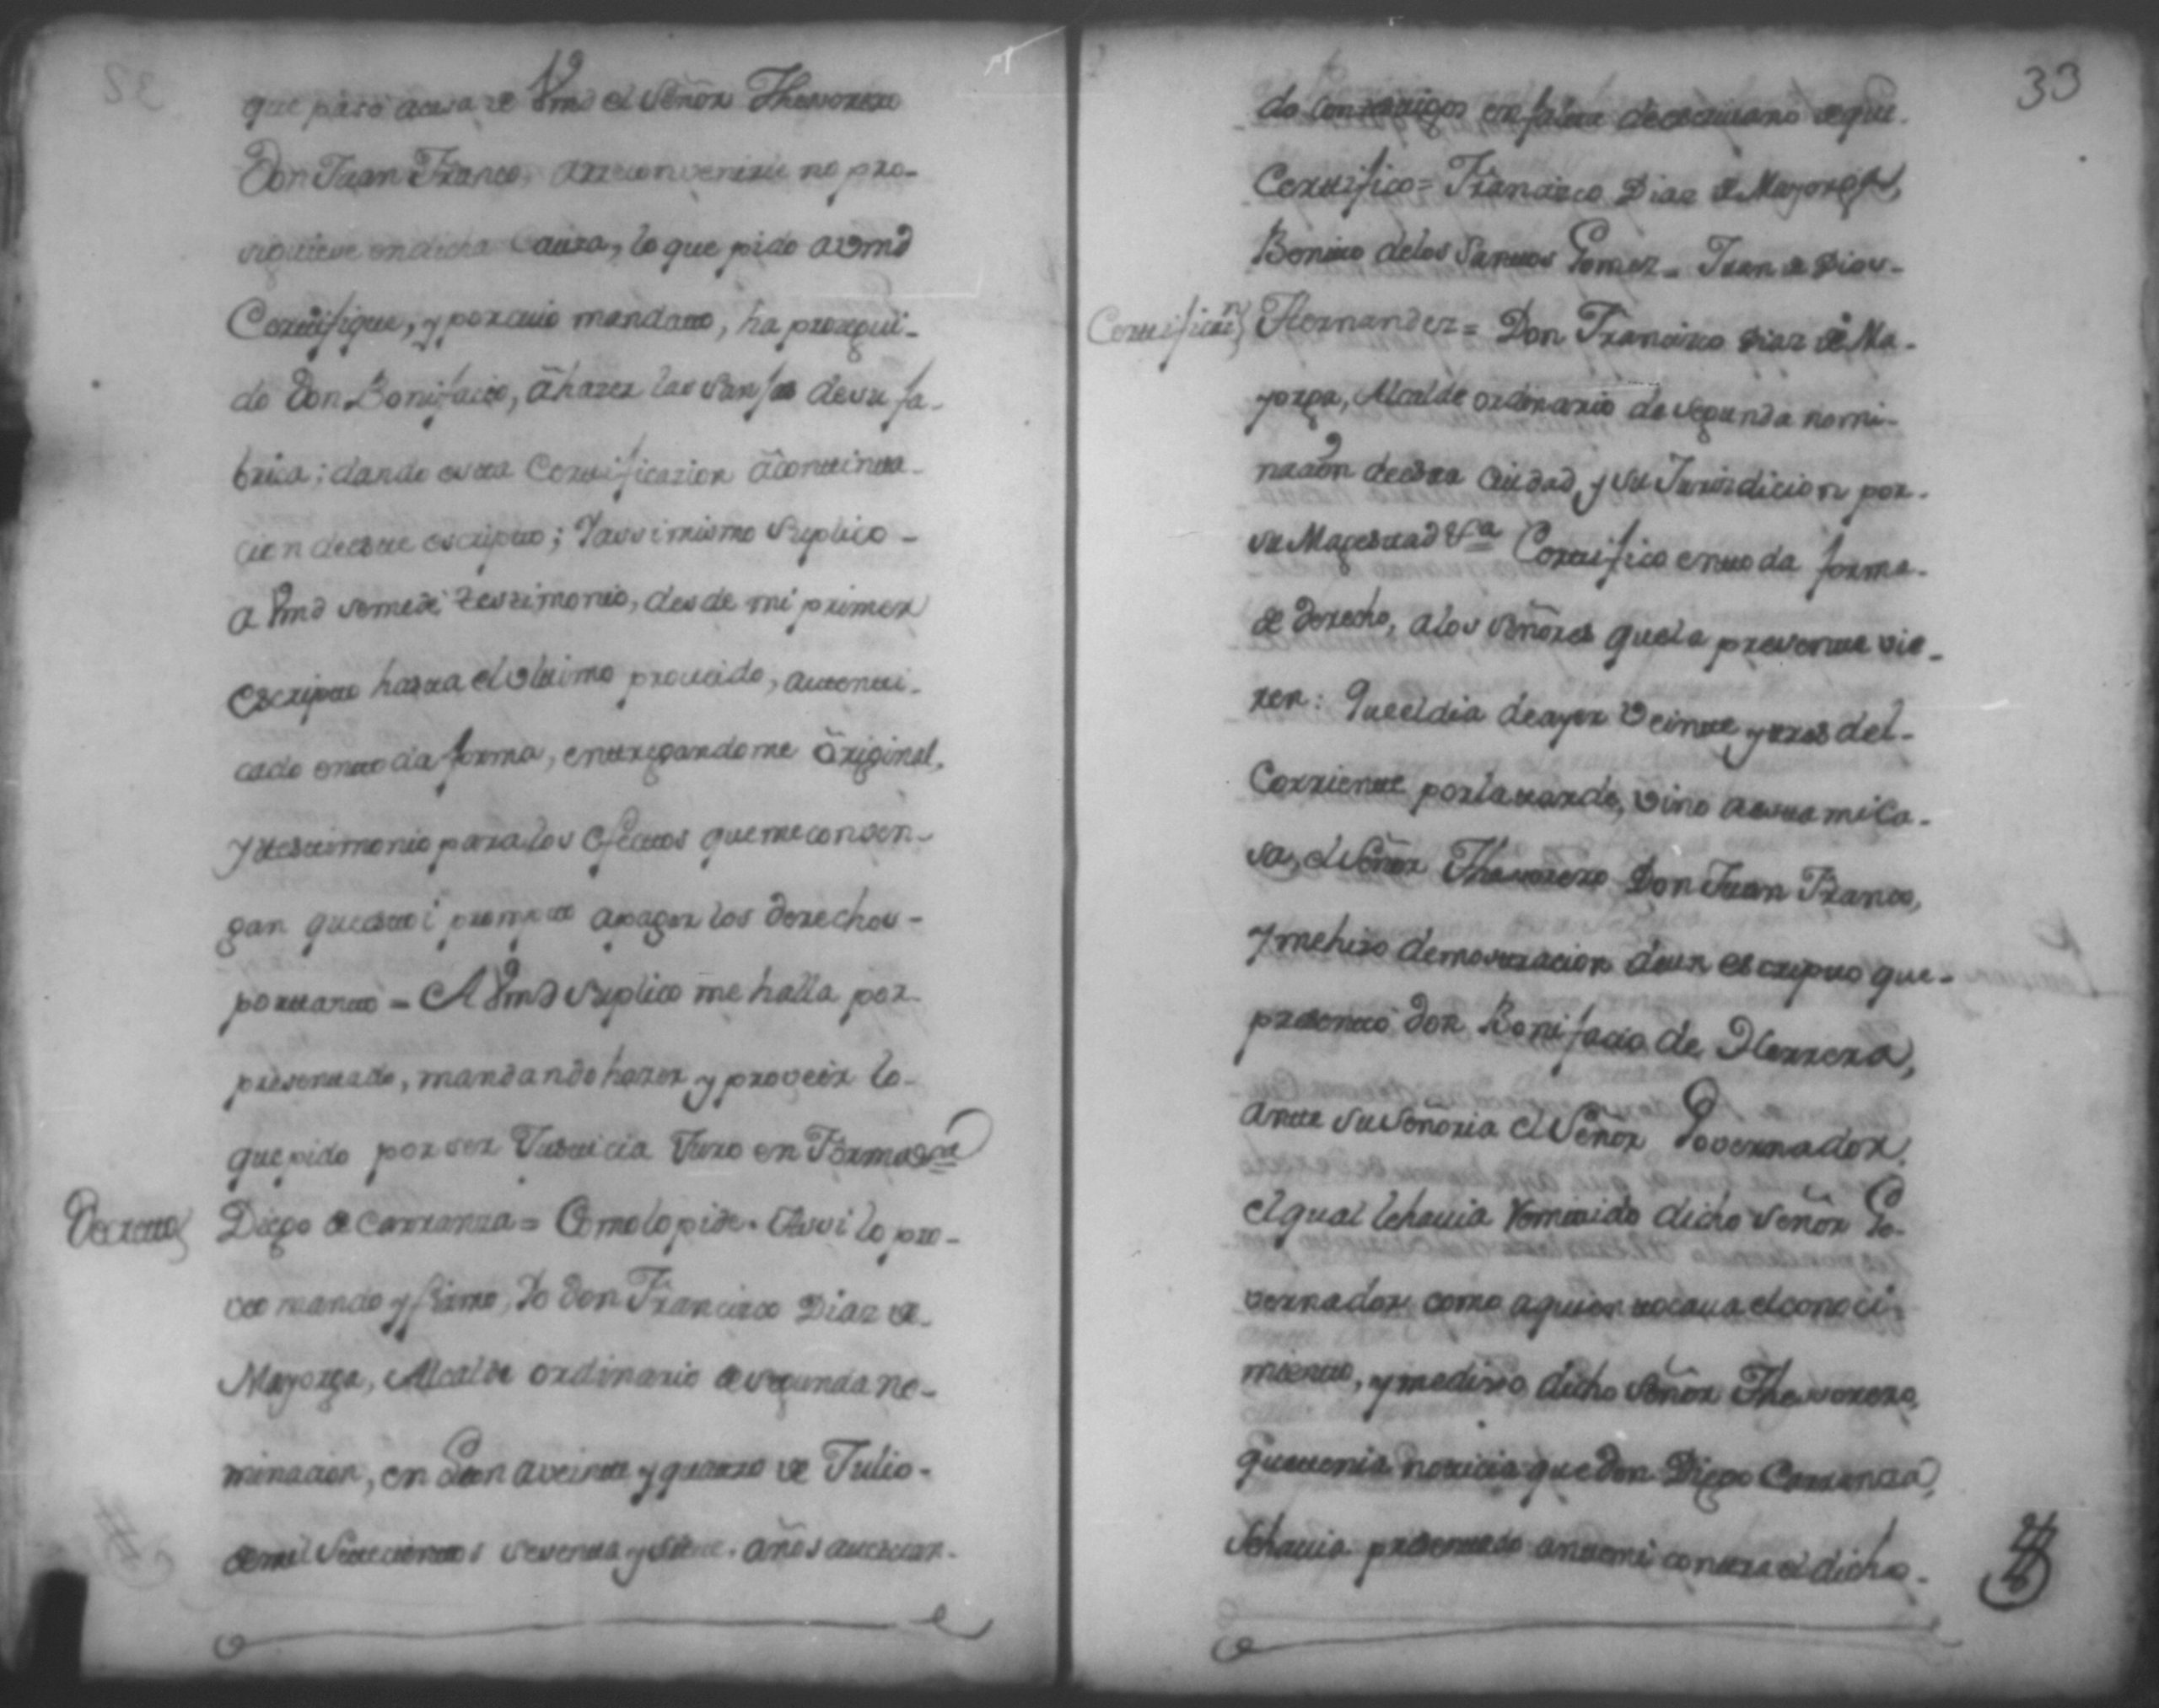 que paso a casa de Vmd el Señor Thesorero
Don Juan Franco, arreconvenirle no pro-
siguiese en dicha Causa, lo que pido a Vmd
Certifique, y por cuio mandato, ha prosegui-
do Don Bonifacio, â hazer las de su fa-
brica; dando esta Certificazion â continua-
cion de este escripto; Yassimismo Suplico -
a Vmd se me dé testimonio, desde mi primer
Escripto hasta el vltimo proueido, autenti-
cado en toda forma, entregandome Original,
y testimonio para los efectos que me conven-
gan que estoi prompto apagar los derechos -
por tanto = A Vmd Suplico me halla por
presentado, mandando hazer y proveer lo
que pido por ser Justicia Juro en Forma
Decreto Diego de Carranza = Como lo pide. Assi lo pro-
veo mando y firmo, Yo Don Francisco Diaz de
Mayorga, Alcalde ordinario de segunda no-
minacion, en Leon a veinte y quatro de Julio -
de mil Setecientos sesenta y siete. años actuan-
33
do con testigos en falta de escriuano de que
Certifico = Francisco Diaz de Mayorga,
Benito de los Santos Gomez = Juan de Dios -
Certificn Hernandez = Don Francisco Diaz de Ma-
yorga, Alcalde ordinario de segunda nomi-
nacion de esta Ciudad, y su Jurisdicion por
su Magestad &a Certifico en toda forma
de derecho, a los Señores que la presente vie-
ren: Que el dia de ayer Veinte y tres del
Corriente por la tarde, vino a esta mi Ca-
sa, el Señor Thesorero Don Juan Franco,
y me hizo demostracion de un escripto que
presentó don Bonifacio de Herrera,
ante su Señoria el Señor Governador.
el qual le hauia Remitido dicho Señor Go-
vernador como a quien tocaua el conoci-
miento, y me dixo dicho Señor Thesorero,
que tenia noticia que don Diego Carranza,
Se hauia presentado ante mi contra el dicho -